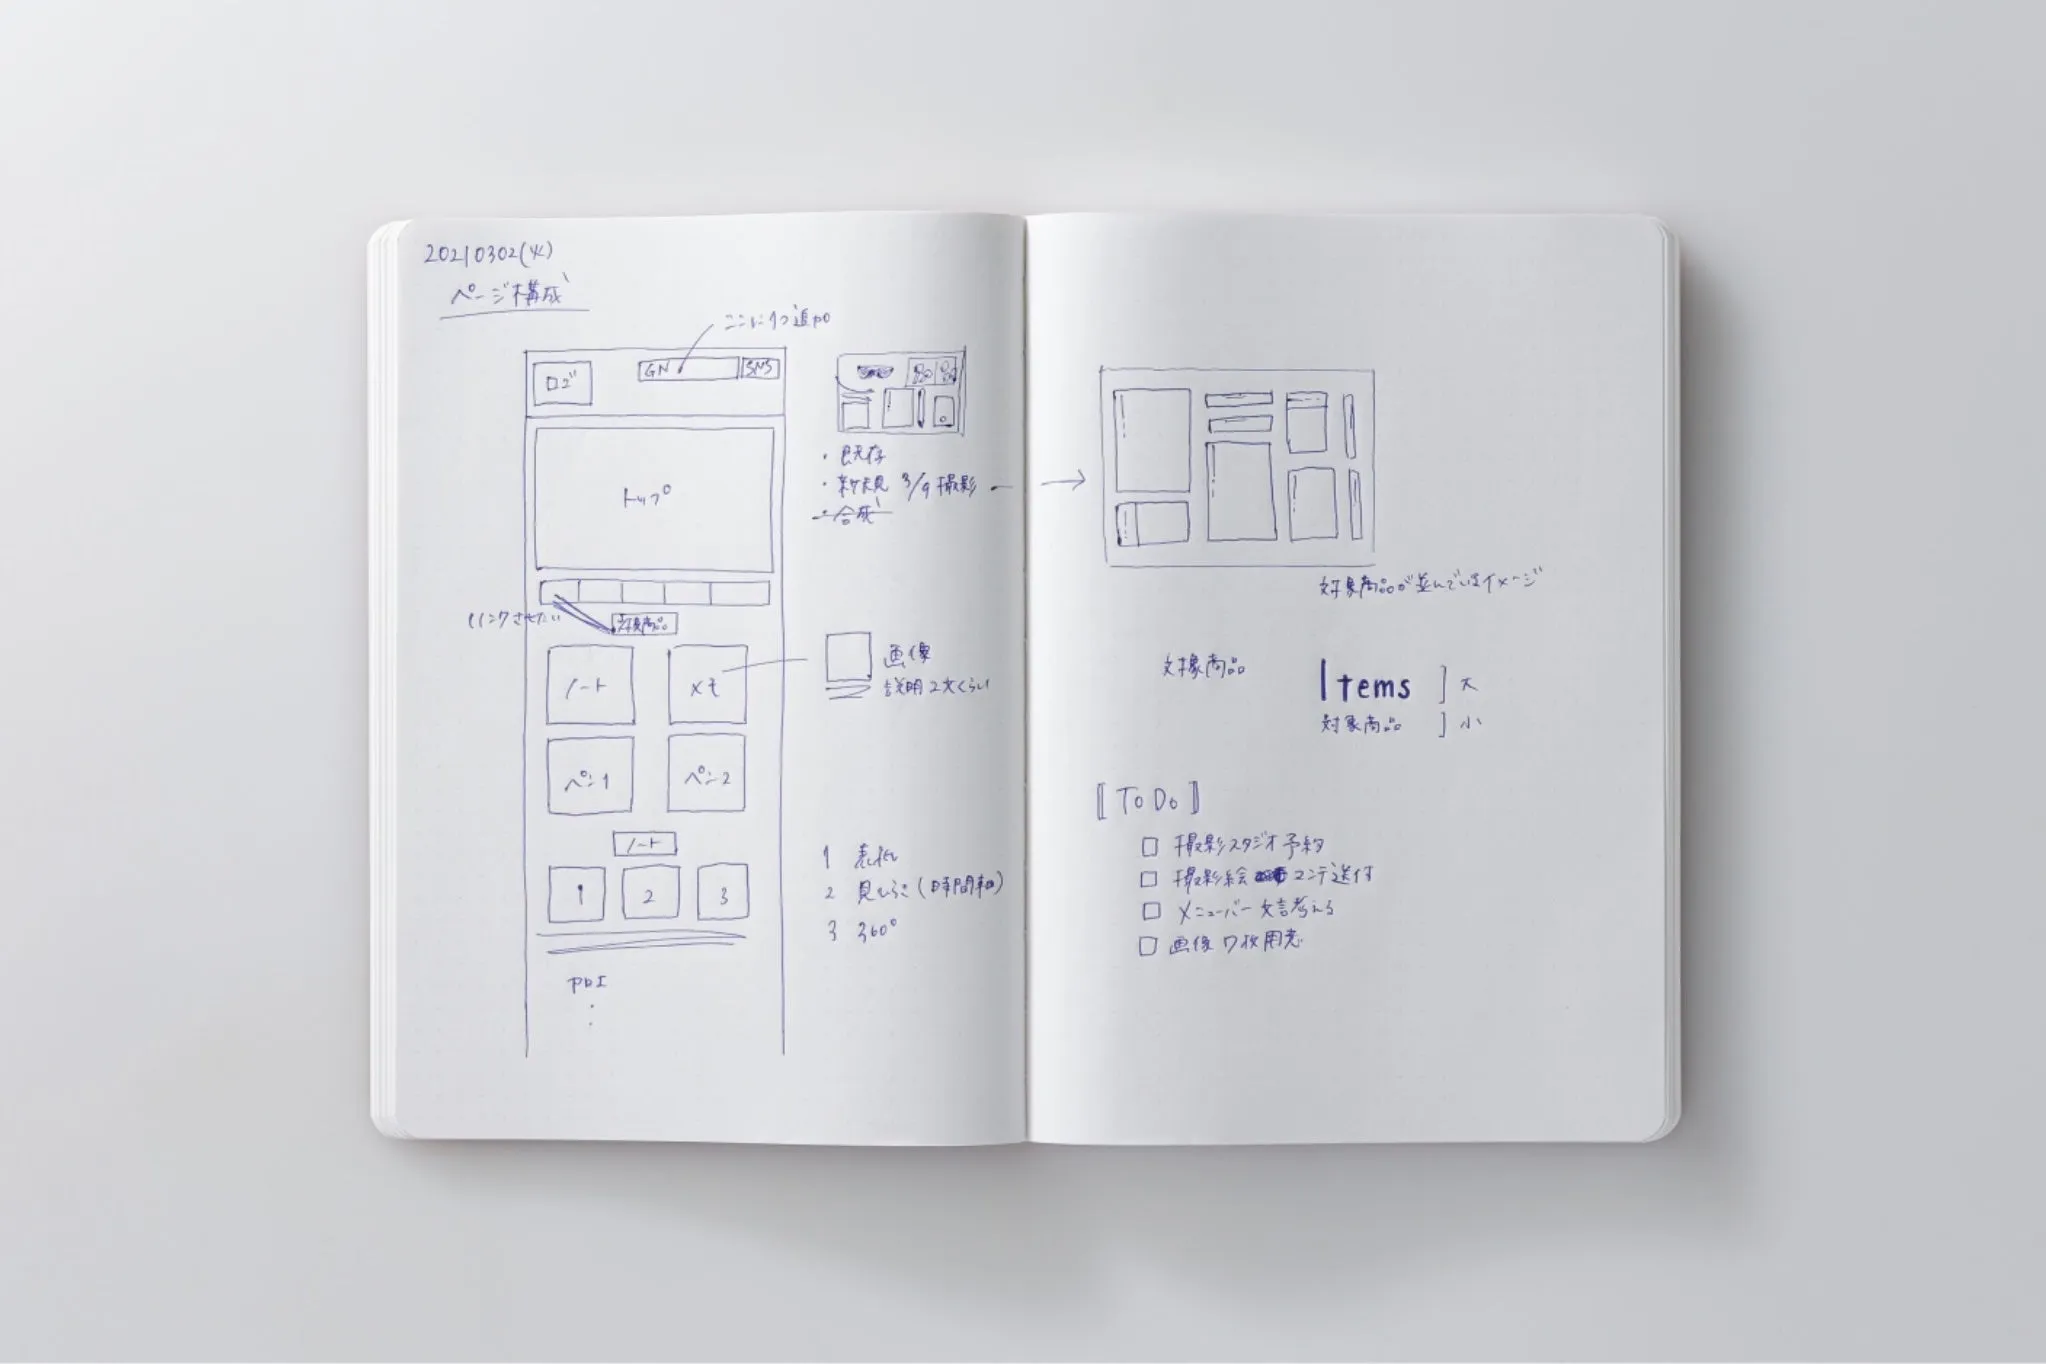 20210302(火)
ページ構成
ここに1つ追加
ロゴ
GN
SNS
トップ
・既存
・新規 3/9 撮影
・合成
リンクさせたい
対象商品
ノート
メモ
画像
説明2文くらい
ペン1
ペン2
ノート
1
2
3
1 表紙
2 見ひらき(時間軸)
3 360°
対象商品が並んでいるイメージ
対象商品
Items ] 大
対象商品 ] 小
[ To Do ]
□ 撮影スタジオ予約
□ 撮影絵コンテ送付
□ メニューバー文言考える
□ 画像7枚用意